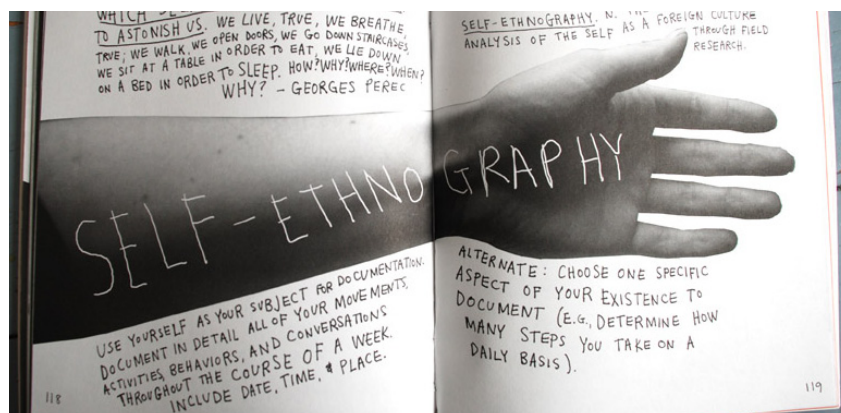 WHICH
TO ASTONISH US. WE LIVE, TRUE, WE BREATHE,
TRUE; WE WALK, WE OPEN DOORS, WE GO DOWN STAIRCASES,
WE SIT AT A TABLE IN ORDER TO EAT, WE LIE DOWN
ON A BED IN ORDER TO SLEEP. HOW? WHY? WHERE? WHEN?
WHY? – GEORGES PEREC
SELF-ETHNO
USE YOURSELF AS YOUR SUBJECT FOR DOCUMENTATION.
DOCUMENT IN DETAIL ALL OF YOUR MOVEMENTS,
ACTIVITIES, BEHAVIORS, AND CONVERSATIONS
THROUGHOUT THE COURSE OF A WEEK.
INCLUDE DATE, TIME, & PLACE.
118
SELF-ETHNOGRAPHY. N. THE
ANALYSIS OF THE SELF AS A FOREIGN CULTURE
THROUGH FIELD
RESEARCH.
GRAPHY
ALTERNATE: CHOOSE ONE SPECIFIC
ASPECT OF YOUR EXISTENCE TO
DOCUMENT (E.G., DETERMINE HOW
MANY STEPS YOU TAKE ON A
DAILY BASIS).
119